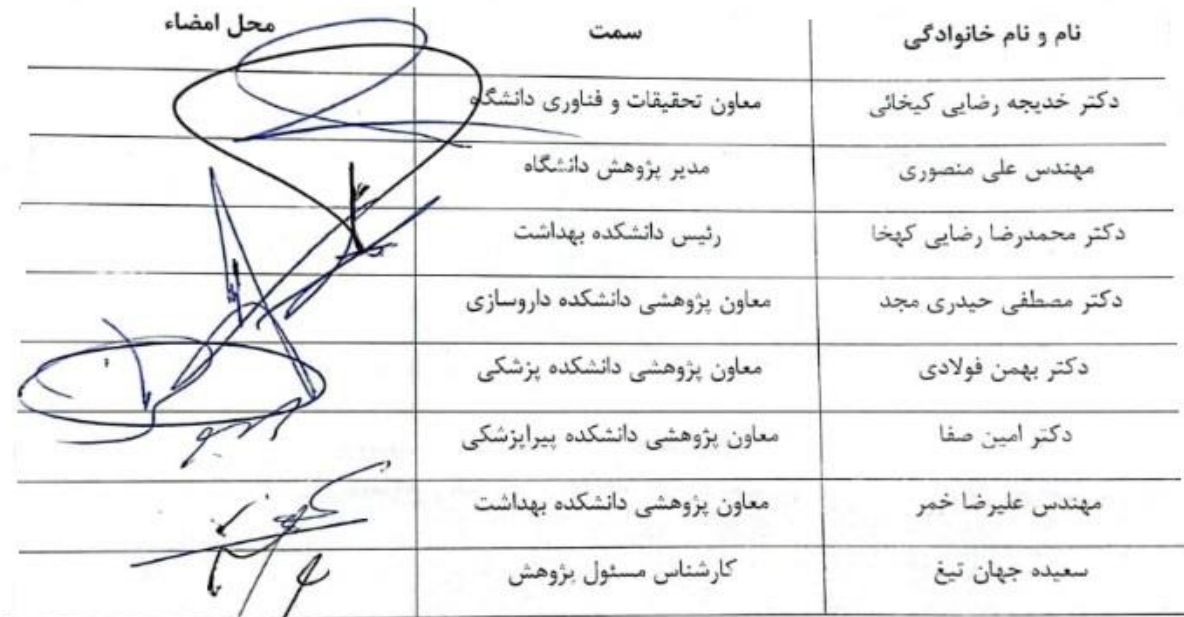 نام و نام خانوادگی سمت محل امضاء
دکتر خدیجه رضایی کیخائی معاون تحقیقات و فناوری دانشگاه
مهندس علی منصوری مدیر پژوهش دانشگاه
دکتر محمدرضا رضایی کهخا رئیس دانشکده بهداشت
دکتر مصطفی حیدری مجد معاون پژوهشی دانشکده داروسازی
دکتر بهمن فولادی معاون پژوهشی دانشکده پزشکی
دکتر امین صفا معاون پژوهشی دانشکده پیراپزشکی
مهندس علیرضا خمر معاون پژوهشی دانشکده بهداشت
سعیده جهان تیغ کارشناس مسئول پژوهش